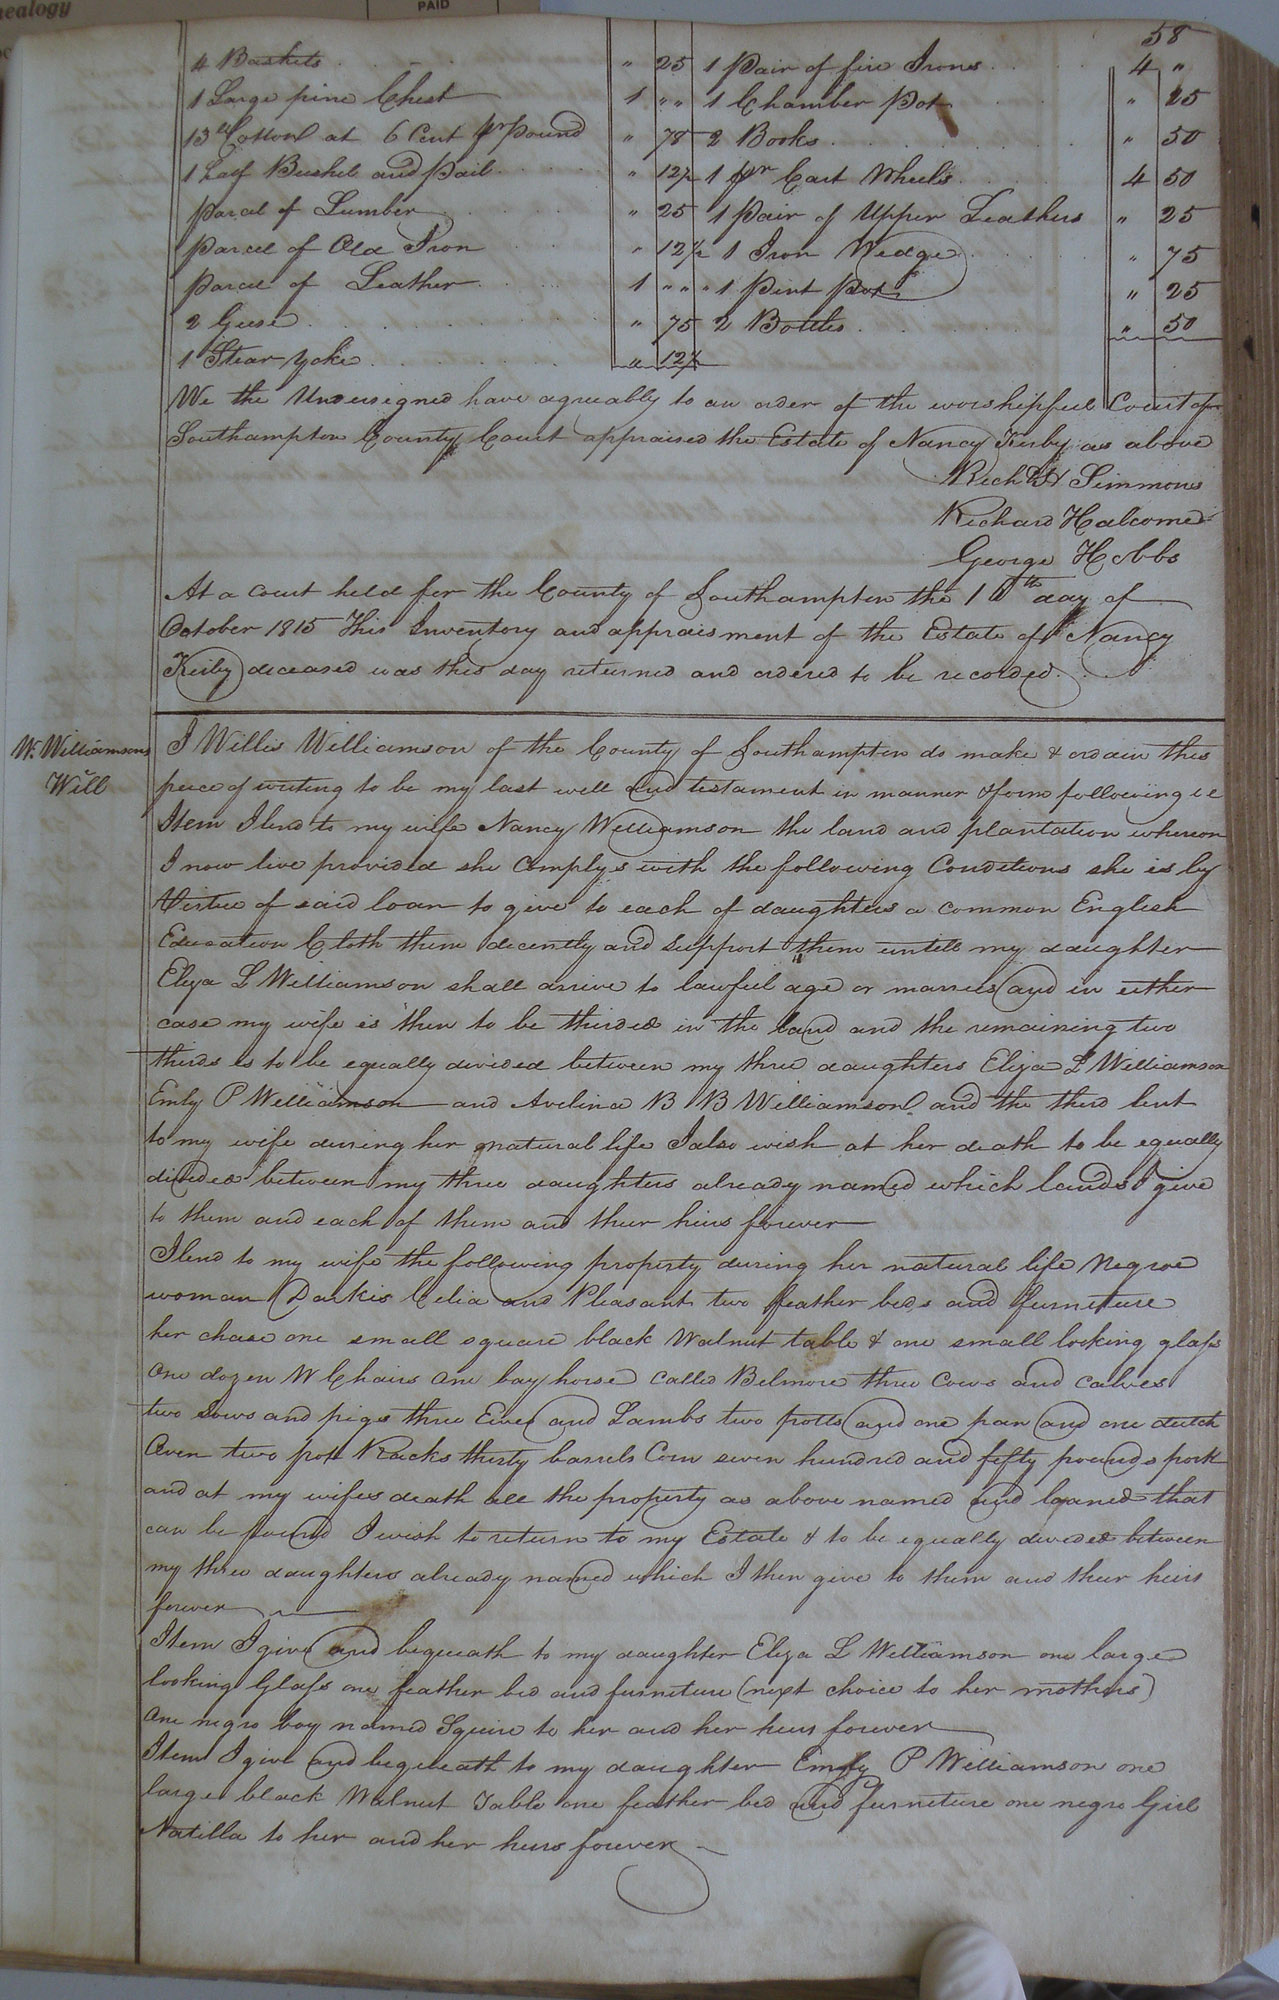 nealogy
PAID
58
4 Baskets " 25 1 Pair of fire Irons 4 "
1 Large pine Chest 1 " " 1 Chamber Pot " 25
13 lb Cotton at 6 Cent pr Pound " 78 2 Books " 50
1 half Bushel and Pail " 12½ 1 pr Cart Wheels 4 50
Parcel of Lumber " 25 1 Pair of Upper Leathers " 25
Parcel of Old Iron " 12½ 1 Iron Wedge " 75
Parcel of Leather 1 " " " 1 Pint Pot " 25
2 Geese " 75 2 Bottles " 50
1 Stear Yoke " 12½
We the Undersigned have agreuably to an order of the worshipful Court of
Southampton County Court appraised the Estate of Nancy Kirby as above
Richd H Simmons
Richard Halcome
George Hobbs
At a court held for the County of Southampton the 16th day of
October 1815 This Inventory and appraisment of the Estate of Nancy
Kirby deceased was this day returned and ordered to be recorded
W. Williamsons
Will
I Willis Williamson of the County of Southampton do make & ordain this
peice of writing to be my last will and testament in manner & form following i e
Item I lend to my wife Nancy Williamson the land and plantation whereon
I now live provided she Complys with the following Conditions she is by
Virtue of said loan to give to each of daughters a common English
Education Cloth them decently and Support them untill my daughter
Eliza L Williamson shall arrive to lawful age or marries and in either
case my wife is then to be thirded in the land and the remaining two
thirds is to be equally divided between my three daughters Eliza L Williamson
Emly P Williamson and Avelina B B Williamson and the third lent
to my wife during her natural life I also wish at her death to be equally
divided between my three daughters already named which lands I give
to them and each of them and their heirs forever
I lend to my wife the following property during her natural life Negroe
woman Darkis Celia and Pleasant two feather beds and furniture
her chase one small square black Walnut table & one small looking glass
One dozen W Chairs one bay horse called Belmore three Cows and calves
two sows and pigs three Ewes and Lambs two potts and one pan and one dutch
Oven two pott Racks thirty barrels Corn seven hundred and fifty pounds pork
and at my wifes death all the property as above named and loaned that
can be found I wish to return to my Estate & to be equally divided between
my three daughters already named which I then give to them and their heirs
forever
Item I give and bequeath to my daughter Eliza L Williamson one large
looking Glass one feather bed and furniture (next choice to her mothers)
One negro boy named Squire to her and her heirs forever
Item I give and bequeath to my daughter Emily P Williamson one
large black Walnut Table one feather bed and furniture one negro Girl
Natilla to her and her heirs forever